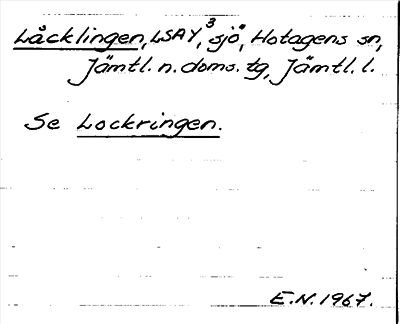 Låcklingen, LSAY,³ sjö, Hotagens sn,
Jämtl. n. doms. tg, Jämtl. l.
Se Lockringen.
E.N. 1967.